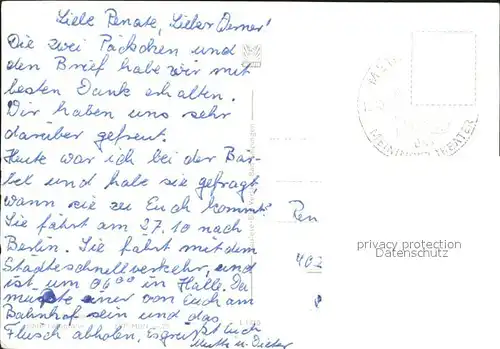 Liebe Renate, Lieber Werner!
Die zwei Päckchen und
den Brief habe wir mit
besten Dank erhalten.
Wir haben uns sehr
darüber gefreut.
Heute war ich bei der Bär-
bel und habe sie gefragt,
wann sie zu Euch kommt?
Sie fährt am 27.10 nach
Berlin. Sie fährt mit dem
Städteschnellverkehr, und
ist um 06⁰⁰ in Halle. Da
müßte einer von Euch am
Bahnhof sein und das
Fleisch abholen, Es grüßt Euch
Mutti u. Dieter
Ren
402
MEININGER THEATER
privacy protection
Datenschutz